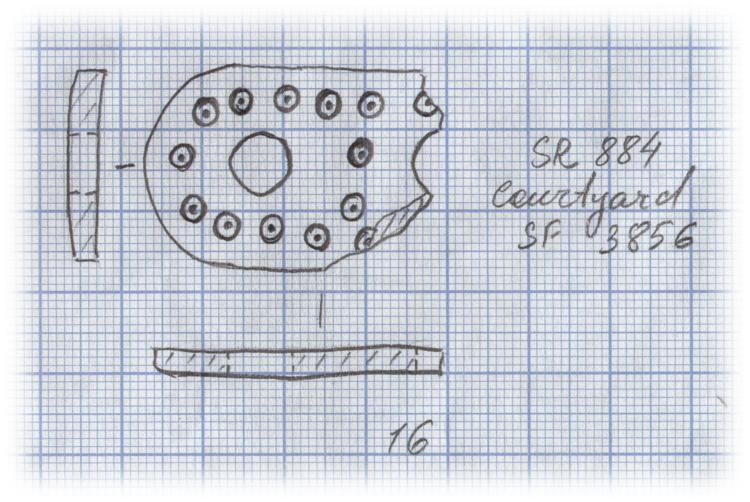 SR 884
Courtyard
SF 3856
16